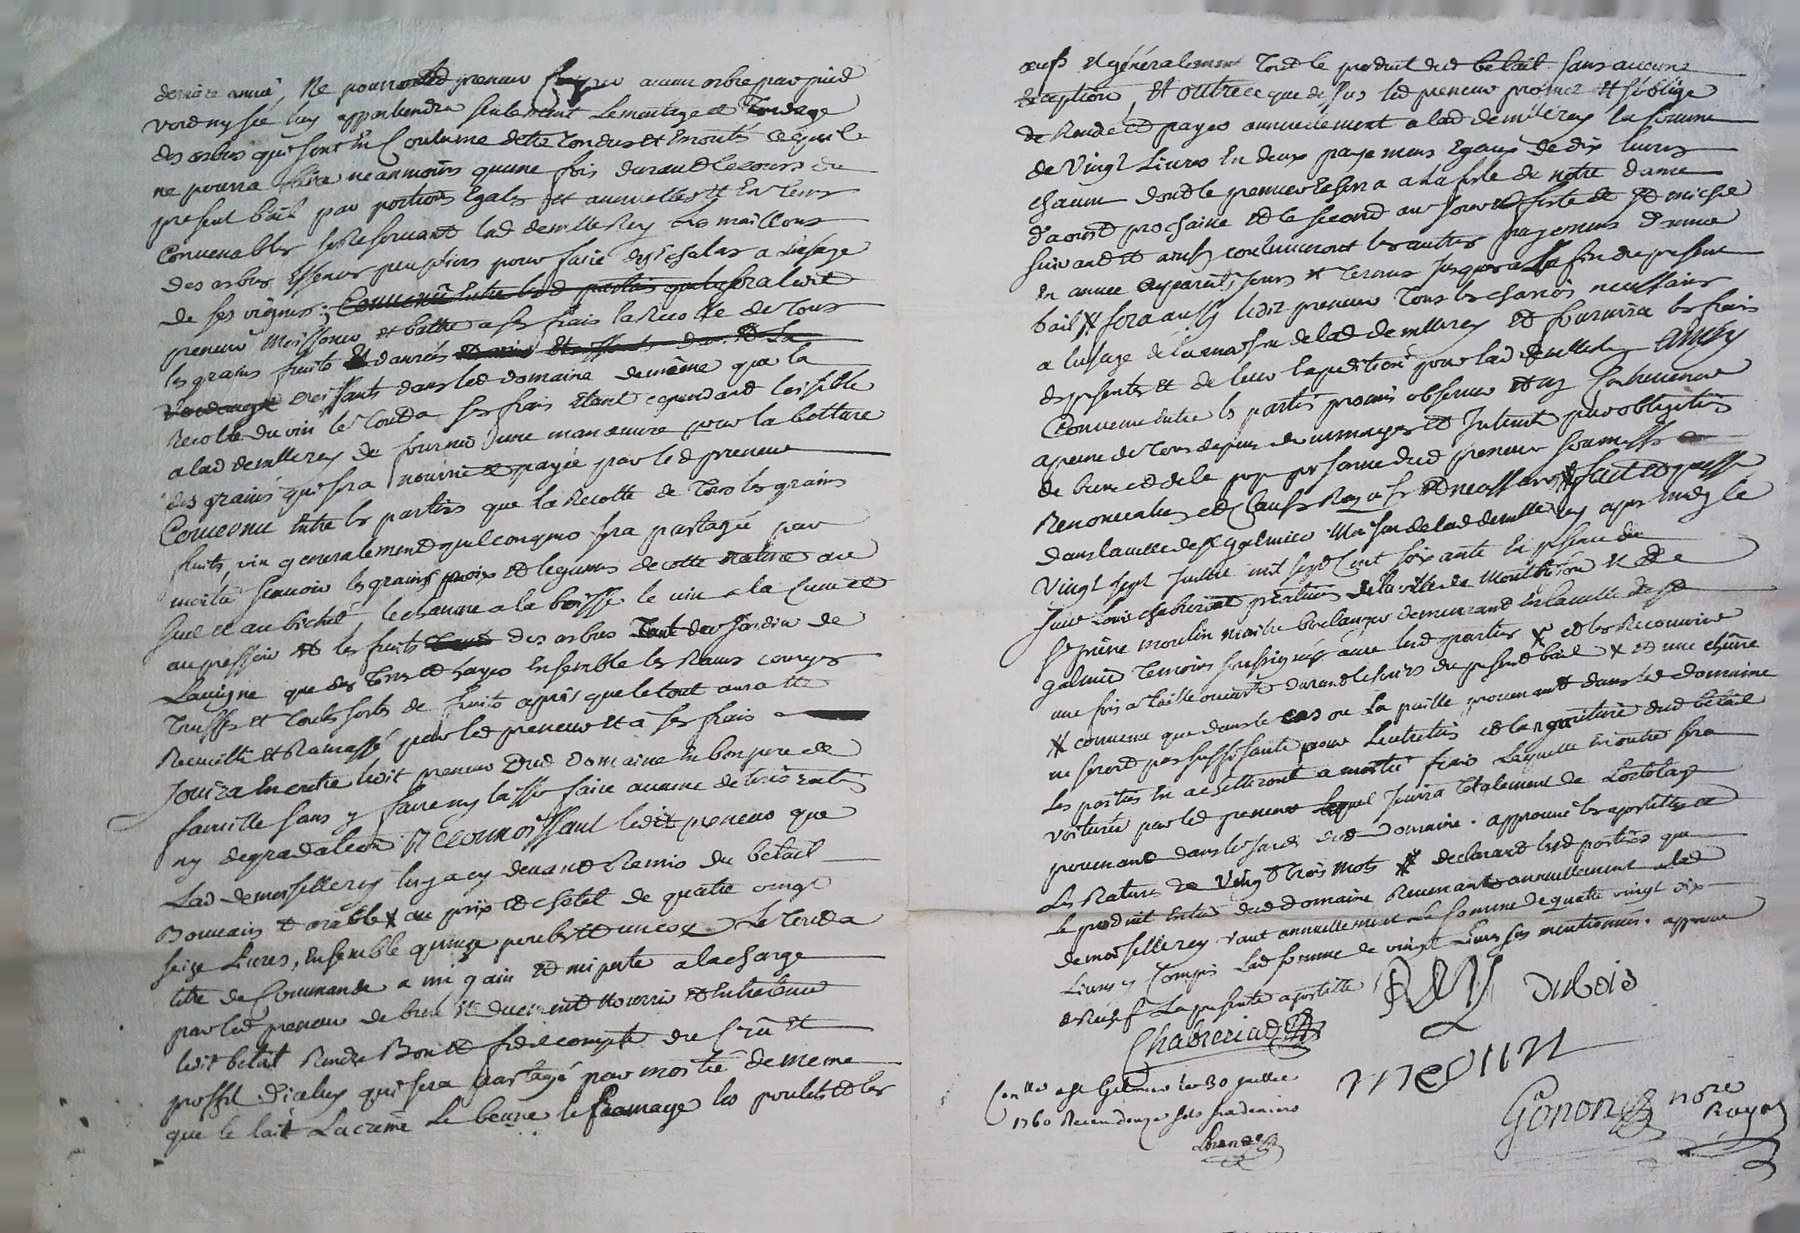 derniere année, Ne pourra led preneur couper aucun arbre par pied
verd ny sec luy appartiendra seulement Le montage et Tondage
des arbres qui sont En Coutume d'etre Tondus et Emontés ce qu'il
ne pourra faire neanmoins qu'une fois durant le cours du
present bail par portions Egales et annuelles et En tems
Convenables se Reservant lad demlle Rey les maillons
des arbres Essence peupliers pour faire des Echalas a L'usage
de ses vignes; Convenu Entre lesd parties que led
preneur Moissonera et battra a ses frais la Recolte de Tous
les grains fruits et danrées
croissants dans led domaine de même que la
Recolte du vin le Tout a ses frais Etant cependant loisible
a lad demlle rey de fournir une manœuvre pour la batture
des grains qui sera nourrie et payée par led preneur
Convenu Entre les parties que la Recolte de Tous les grains
fruits, vin generalement quelconques sera partagée par
moitié Scavoir les grains pois et legumes de cette nature au
Suel et au bichet, le chanvre a la boisse le vin a la Cuve et
au pressoir et les fruits des arbres Tant du Jardin de
La vigne que des Terres et Rayes Ensemble les Raves courges
Truffes et Toutes sortes de fruits après que le tout aura été
Recueilli et Ramassé par led preneur et à ses frais
Jouira En outre ledit preneur dud domaine En bon pere de
famille sans y faire ny laisser faire aucune deteriorations
ny degradations Reconnoissant ledit preneur que
Lad demoiselle rey luy a cy devant Remis du bétail
Bouvain et arable X au prix et chetel de quatre vingt
seize Livres, Ensemble quinze poules et un coq Le Tout a
titre de Commande a mi gain et mi perte a la charge
par led preneur de bien et duement Nourrir et Entretenir
ledit betail Rendre Bon et fidel compte du Crû et
proffit d'icelluy qui sera partagé par moitié de meme
que le lait La creme Le beure le fromage les poulets et les
œufs Et généralement Tout le produit dud betail sans aucune
Exception, Et outre ce que dessus led preneur promet et s'oblige
de Rendre et payer annuellement a lad demlle rey la somme
de Vingt Livres En deux payemens Egaux de dix livres
chacun dont le premier Echera a la feste de notre dame
d'aoust prochaine et le second au jour et feste de St michel
suivant et ainsi continueront les autres payemens d'année
en année a pareils jours et termes jusques a la fin du present
bail X fera aussi ledit preneur Tous les charrois necessaires
a l'usage de la maison de lad demlle rey et fournira les frais
des presentes et de leur Expedition pour lad demlle Ainsy
Convenu Entre les parties promis observer et n'y contrevenir
a peine de Tous depens dommages et Interets par obligation
de biens et de la propre personne dud preneur soumissions
Renonciations et Clauses Requises et necessaires X fait et passé
dans la ville de St galmier Maison de lad demlle rey apres midy le
Vingt sept Juillet mil sept Cent soixante En presence du
Sieur Louis chabreriat praticien de la ville de Montbrison et de
Sr prime moulin maitre boulanger demeurant En la ville de St
galmier Temoins soussignés avec lesd parties X et les Recouvrir
une fois a Taille ouverte durant le cours du present bail X et une chevre
X convenu que dans le cas ou La paille provenant dans led domaine
ne seroit pas suffisante pour L'entretien et la nouriture dud betail
Les parties En acheteront a moitié frais Laquelle En outre sera
voiturée par led preneur lequel Jouira totalement de L'ortolage
provenant dans le jardin dud Domaine. approuvé les apostilles et
Les Ratures de Vingt Trois mots X declarant lesd parties que
Le produit Entier dud domaine Revenant annuellement a lad
demoiselle rey vaut annuellement La somme de quatre vingt dix
Livres y Compris Lad somme de vingt Livres sus mentionnée. approuvé
derechef La presente apostille
REY dubois
Chabreriat
Moulin
Conllé a St Galmier le 30 juillet
1760 Receu douze sols six deniers
Gonon nore
Royal